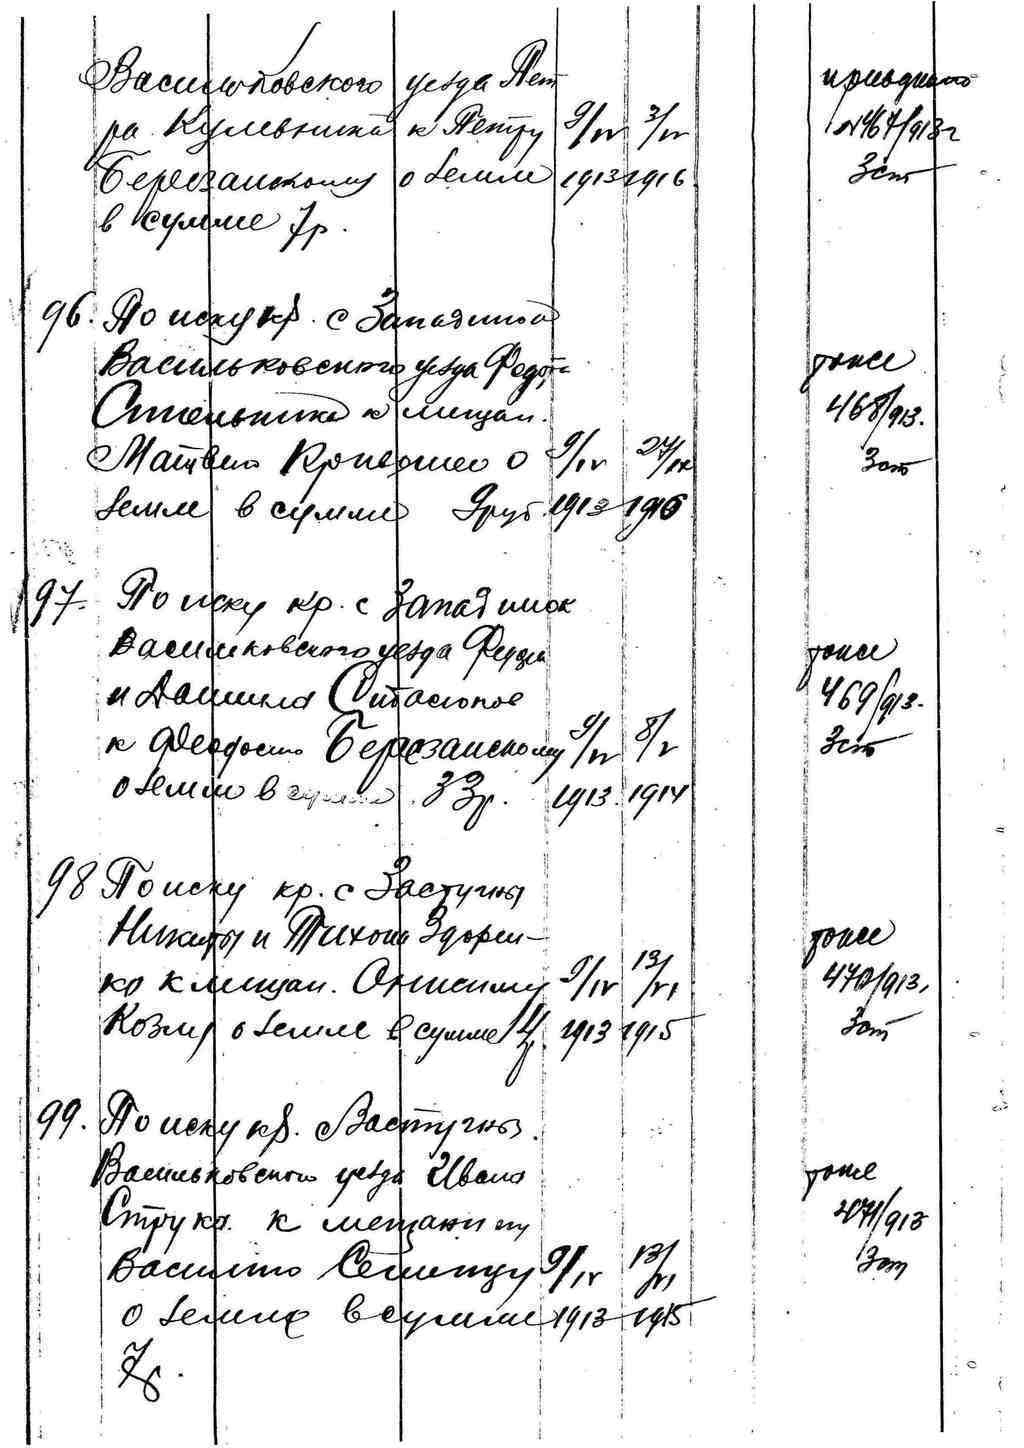 Васильковского уезда Пет
ра Кулевника к Петру 9/IV 3/IV
Березанскому о земле 1913 1916
в сумме 7р.
№467/913 г
3 ст
96. По иску кр. с Западинок
Васильковского уезда Федота
к мещан.
Матвею о 9/IV 27/IX
земле в сумме 9 руб. 1913 1916
тоже
468/913.
3 ст
97. По иску кр. с Западинок
Васильковского уезда
и
к Феодосию Березанскому 9/IV 8/V
о земле в сумме 33р. 1913. 1914
тоже
469/913.
3 ст
98 По иску кр. с Застугны
Никиты и Тихона Здорен-
ко к мещан. Онисиму 9/IV 13/VI
Козлу о земле в сумме 1913 1915
тоже
470/913.
3 ст
99. По иску кр. с Застугны
Васильковского уезда Ивана
Струка к мещанину
Василию 9/IV 13/VI
о земле в сумме 1913 1915
7р.
тоже
471/913
3 ст